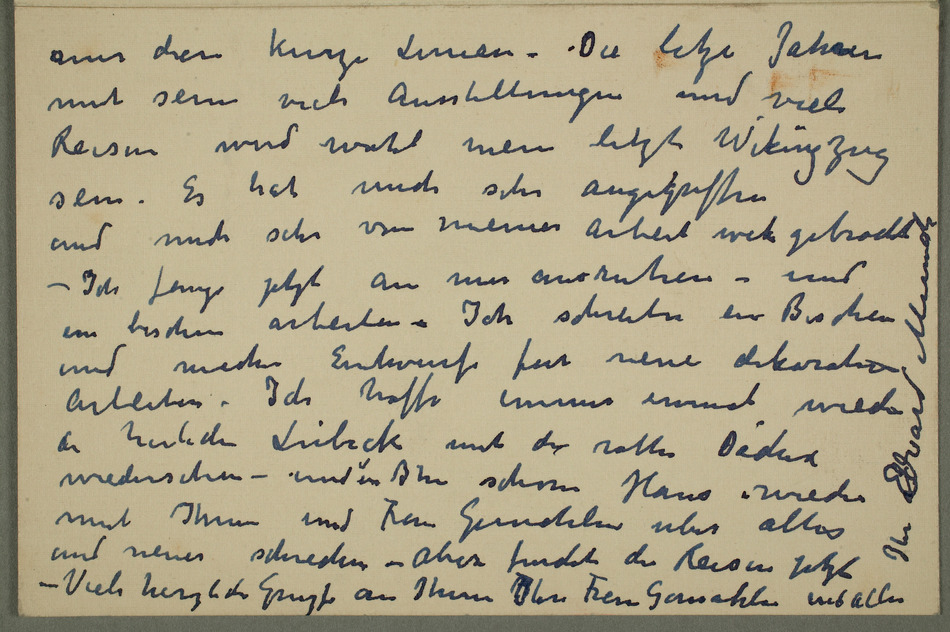 nur diese kurze Linien - Die letze Jahren
mit seine viele Ausstellungen und viele
Reisen wird wohl mein letzte Wikingzug
sein. Es hat mich sehr angegriffen
und mich sehr von meiner Arbeit wek gebracht
- Ich fange jetzt an mir ausruhen - und
ein bischen arbeiten - Ich schreibe ein Bischen
und mache Entwurfe für neue dekorative
Arbeiten. Ich hoffe immer einmal wieder
die herliche Lübeck mit die rothe Dächer
wiedersehen - und in Ihr schöne Haus wieder
mit Ihnen und Frau Gemahlin uber altes
und neues sprechen - aber finde die Reisen jetzt
- Viele herzliche Grüsse an Ihnen Ihre Frau Gemahlin und alle
Ihr Edvard Munch